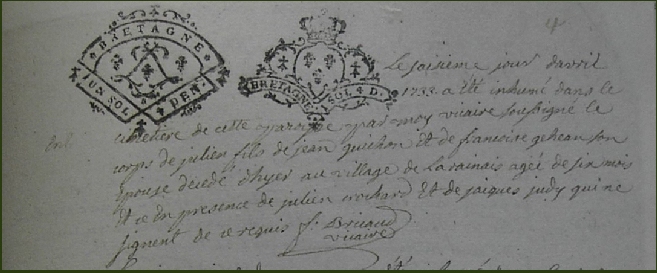 BRETAGNE
UN SOL
DEN
BRETAGNE
SOL 4 D.
4
Le soisieme jour davril
1733 a été inhumé dans le
ent cimetière de cette paroisse par moy vicaire soussigné le
corps de julien fils de jean guichon et de francoise gehean son
epouse décédé d'hyer au village de Larainais agée de six mois
et ce en presence de julien crochard et de jacques judy qui ne
signent de ce requis f. Bricaud
vicaire